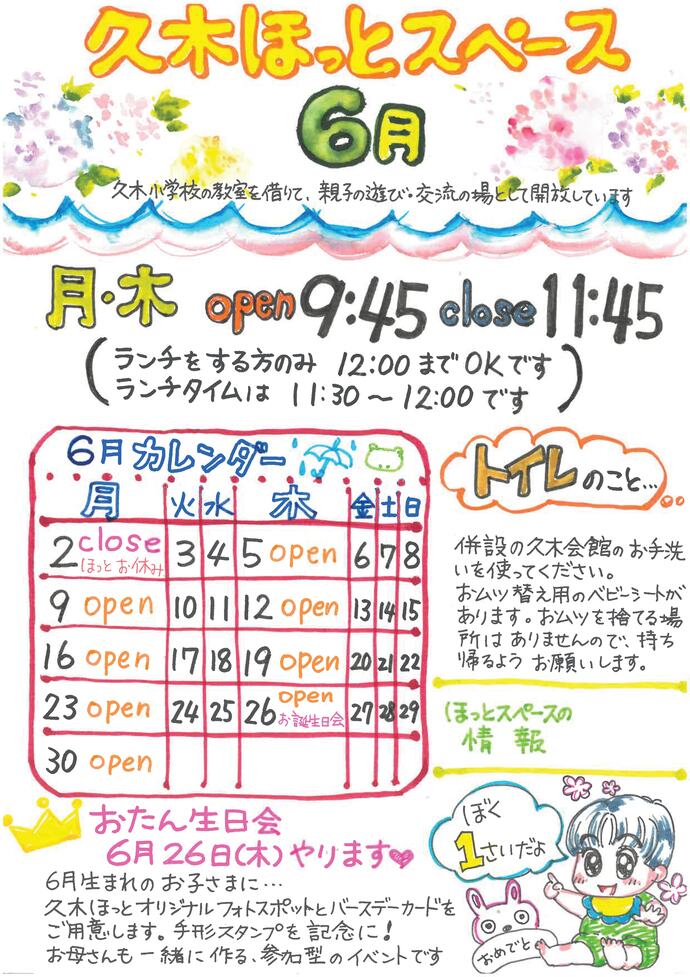 久木ほっとスペース
6月
久木小学校の教室を借りて、親子の遊び・交流の場として開放しています
月・木 open 9:45 close 11:45
(ランチをする方のみ 12:00までOKです
ランチタイムは 11:30～12:00です)
6月カレンダー
月 火 水 木 金 土 日
2 close ほっとお休み 3 4 5 open 6 7 8
9 open 10 11 12 open 13 14 15
16 open 17 18 19 open 20 21 22
23 open 24 25 26 open お誕生日会 27 28 29
30 open
トイレのこと…
併設の久木会館のお手洗
いを使ってください。
おムツ替え用のベビーシートが
あります。おムツを捨てる場
所はありませんので、持ち
帰るようお願いします。
ほっとスペースの
情報
おたん生日会
6月26日(木)やります
6月生まれのお子さまに…
久木ほっとオリジナルフォトスポットとバースデーカードを
ご用意します。手形スタンプを記念に!
お母さんも一緒に作る、参加型のイベントです
ぼく
1さいだよ
おめでと